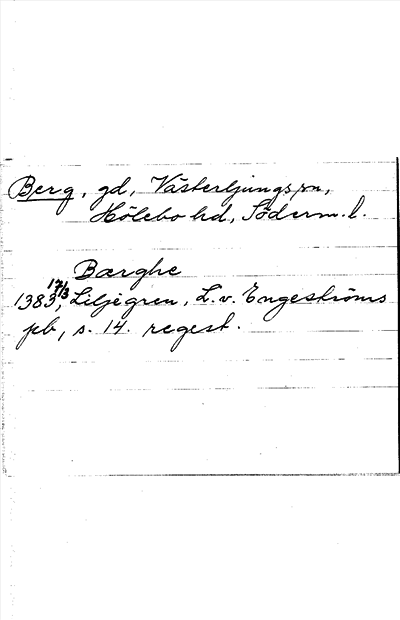 Berg, gd, Västerljungs sn,
Hölebo hd, Söderm. l.
Bærghe
1383 17/3, Liljegren, L. v. Engeströms
pb, s. 14. regest.